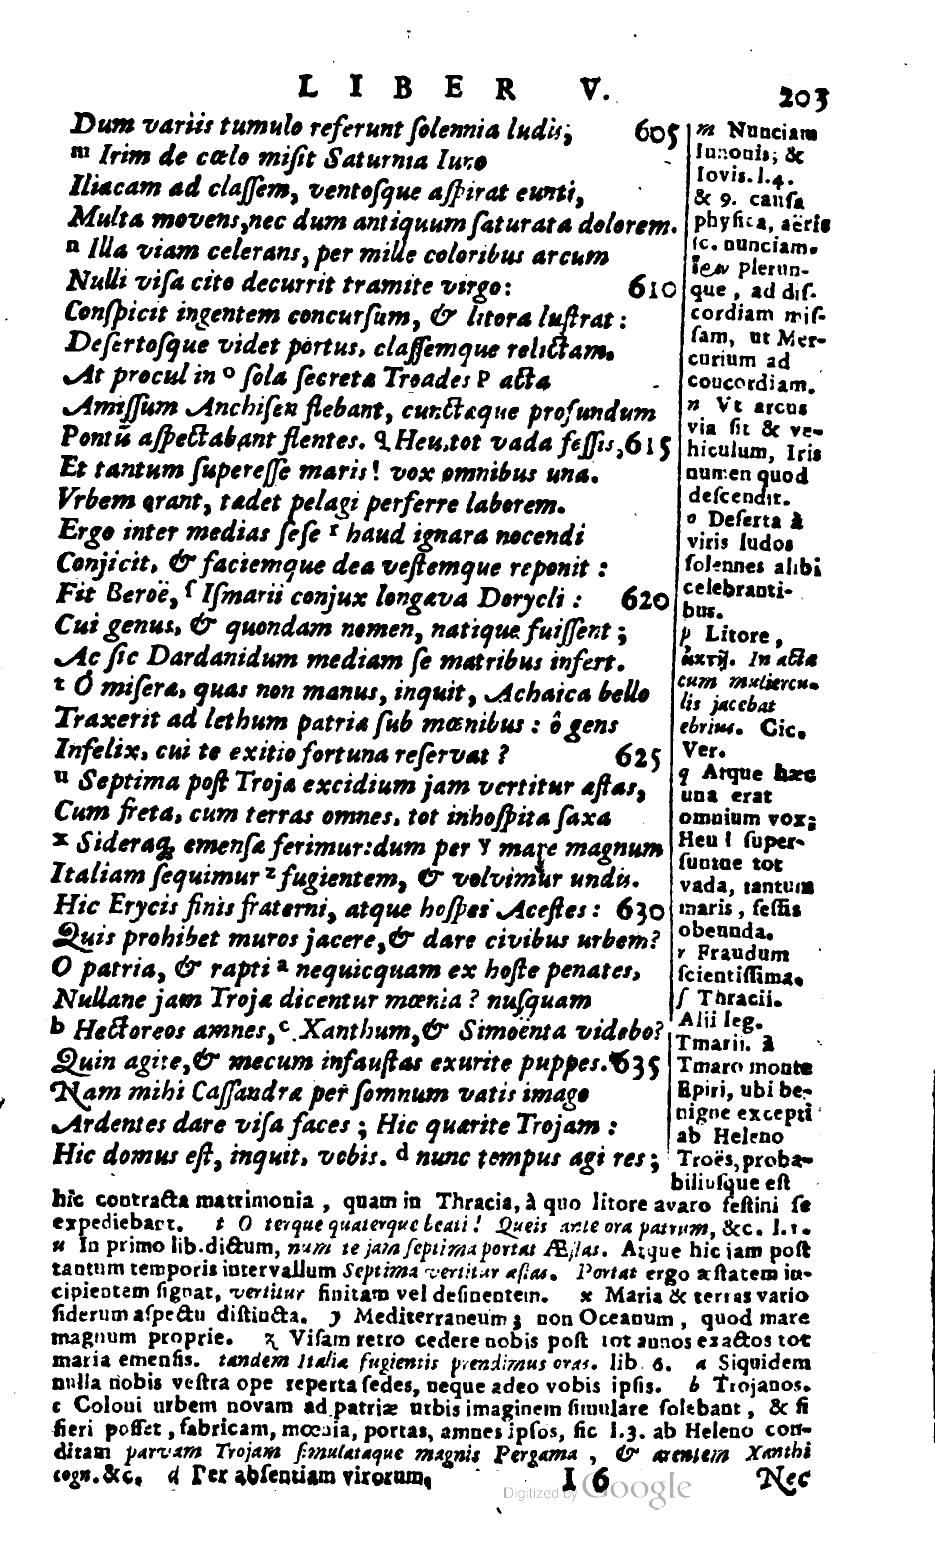 LIBER V. 203
Dum variis tumulo referunt ſolennia ludis; 605
m Irim de cœlo miſit Saturnia Iuno
Iliacam ad claſſem, ventoſque aſpirat eunti,
Multa movens, nec dum antiquum ſaturata dolorem.
n Illa viam celerans, per mille coloribus arcum
Nulli viſa cito decurrit tramite virgo: 610
Conſpicit ingentem concurſum, & litora luſtrat:
Deſertoſque videt portus, claſſemque relictam.
At procul in o ſola ſecreta Troades p acta
Amiſſum Anchiſen flebant, cunctæque profundum
Pontū aſpectabant flentes. q Heu, tot vada feſſis, 615
Et tantum ſupereſſe maris! vox omnibus una.
Vrbem orant, tædet pelagi perferre laborem.
Ergo inter medias ſeſe r haud ignara nocendi
Conjicit, & faciemque dea veſtemque reponit:
Fit Beroë, ſ Iſmarii conjux longæva Dorycli: 620
Cui genus, & quondam nomen, natique fuiſſent;
Ac ſic Dardanidum mediam ſe matribus infert.
t Ô miſeræ, quas non manus, inquit, Achaica bello
Traxerit ad lethum patriæ ſub mœnibus: ô gens
Infelix, cui te exitio fortuna reſervat? 625
u Septima poſt Trojæ excidium jam vertitur æſtas,
Cum freta, cum terras omnes, tot inhoſpita ſaxa
x Sideraq; emenſæ ferimur: dum per y mare magnum
Italiam ſequimur z fugientem, & volvimur undis.
Hic Erycis fines fraterni, atque hoſpes Aceſtes: 630
Quis prohibet muros jacere, & dare civibus urbem?
O patria, & rapti a nequicquam ex hoſte penates,
Nullane jam Trojæ dicentur mœnia? nuſquam
b Hectoreos amnes, c Xanthum, & Simoënta videbo?
Quin agite, & mecum infauſtas exurite puppes. 635
Nam mihi Caſſandræ per ſomnum vatis imago
Ardentes dare viſa faces; Hic quærite Trojam:
Hic domus eſt, inquit, vobis. d nunc tempus agi res;
m Nunciam
Iunonis; &
Iovis. l. 4.
& 9. cauſa
phyſica, aëris
ſc. nunciam.
ἶριν plerun-
que, ad diſ-
cordiam miſ-
ſam, ut Mer-
curium ad
concordiam.
n Vt arcus
via ſit & ve-
hiculum, Iris
numen quod
deſcendit.
o Deſerta à
viris ludos
ſolennes alibi
celebranti-
bus.
p Litore,
ἀκτῇ. In acta
cum muliercu-
lis jacebat
ebrius. Cic.
Ver.
q Atque hæc
una erat
omnium vox;
Heu! ſuper-
ſuntne tot
vada, tantum
maris, feſſis
obeunda.
r Fraudum
ſcientiſſima.
ſ Thracii.
Alii leg.
Tmarii. à
Tmaro monte
Epiri, ubi be-
nigne excepti
ab Heleno
Troës, proba-
biliuſque eſt
hîc contracta matrimonia, quam in Thracia, à quo litore avaro feſtini ſe
expediebant. t O terque quaterque beati! Queis ante ora patrum, &c. l. 1.
u In primo lib. dictum, nam te jam ſeptima portat Æſtas. Atque hic iam poſt
tantum temporis intervallum Septima vertitur æſtas. Portat ergo æſtatem in-
cipientem ſignat, vertitur finitam vel deſinentem. x Maria & terras vario
ſiderum aſpectu diſtincta. y Mediterraneum; non Oceanum, quod mare
magnum proprie. z Viſam retro cedere nobis poſt tot annos exactos tot
maria emenſis. tandem Italiæ fugientis prendimus oras. lib. 6. a Siquidem
nulla nobis veſtra ope reperta ſedes, neque adeo vobis ipſis. b Trojanos.
c Coloni urbem novam ad patriæ urbis imaginem ſimulare ſolebant, & ſi
fieri poſſet, fabricam, mœnia, portas, amnes ipſos, ſic l. 3. ab Heleno con-
ditam parvam Trojam ſimulataque magnis Pergama, & arentem Xanthi
cogn. &c. d Per abſentiam virorum,
I 6 Nec
Digitized by Google